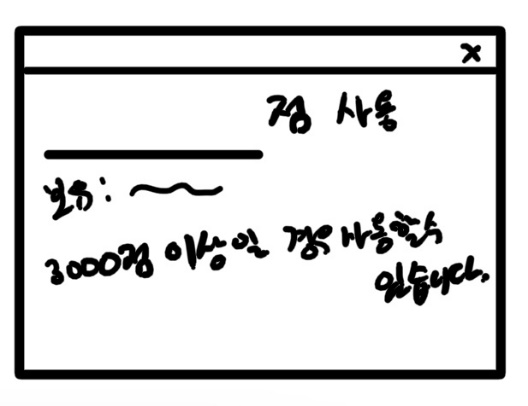 x
점 사용
보유:
3000점 이상일 경우 사용할 수
있습니다.